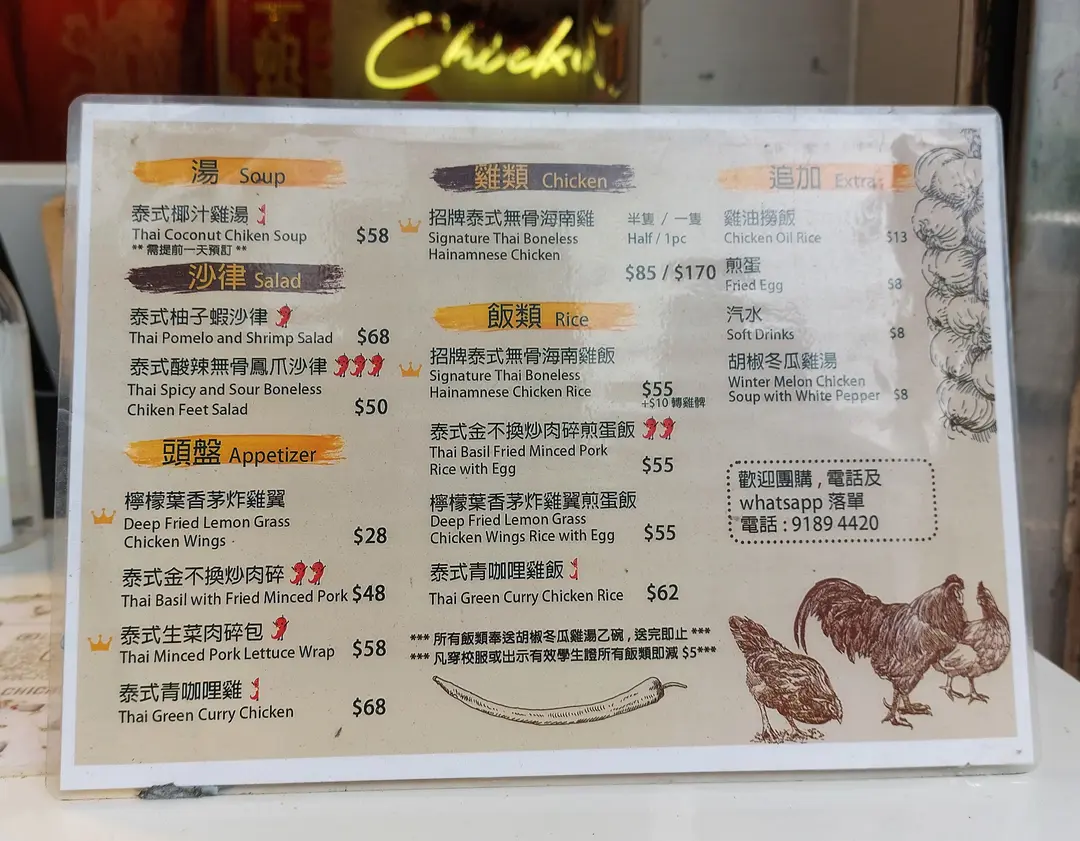 Chickin
湯 Soup
泰式椰汁雞湯
Thai Coconut Chiken Soup
$58
** 需提前一天預訂 **
沙律 Salad
泰式柚子蝦沙律
Thai Pomelo and Shrimp Salad $68
泰式酸辣無骨鳳爪沙律
Thai Spicy and Sour Boneless
Chiken Feet Salad $50
頭盤 Appetizer
檸檬葉香茅炸雞翼
Deep Fried Lemon Grass
Chicken Wings $28
泰式金不換炒肉碎
Thai Basil with Fried Minced Pork $48
泰式生菜肉碎包
Thai Minced Pork Lettuce Wrap $58
泰式青咖哩雞
Thai Green Curry Chicken $68
雞類 Chicken
招牌泰式無骨海南雞 半隻 / 一隻
Signature Thai Boneless Half / 1pc
Hainamnese Chicken
$85 / $170
飯類 Rice
招牌泰式無骨海南雞飯
Signature Thai Boneless
Hainamnese Chicken Rice $55
+$10 轉雞髀
泰式金不換炒肉碎煎蛋飯
Thai Basil Fried Minced Pork
Rice with Egg $55
檸檬葉香茅炸雞翼煎蛋飯
Deep Fried Lemon Grass
Chicken Wings Rice with Egg $55
泰式青咖哩雞飯
Thai Green Curry Chicken Rice $62
*** 所有飯類奉送胡椒冬瓜雞湯乙碗 , 送完即止 ***
*** 凡穿校服或出示有效學生證所有飯類即減 $5***
追加 Extra
雞油撈飯
Chicken Oil Rice $13
煎蛋
Fried Egg $8
汽水
Soft Drinks $8
胡椒冬瓜雞湯
Winter Melon Chicken
Soup with White Pepper $8
歡迎團購 , 電話及
whatsapp 落單
電話 : 9189 4420